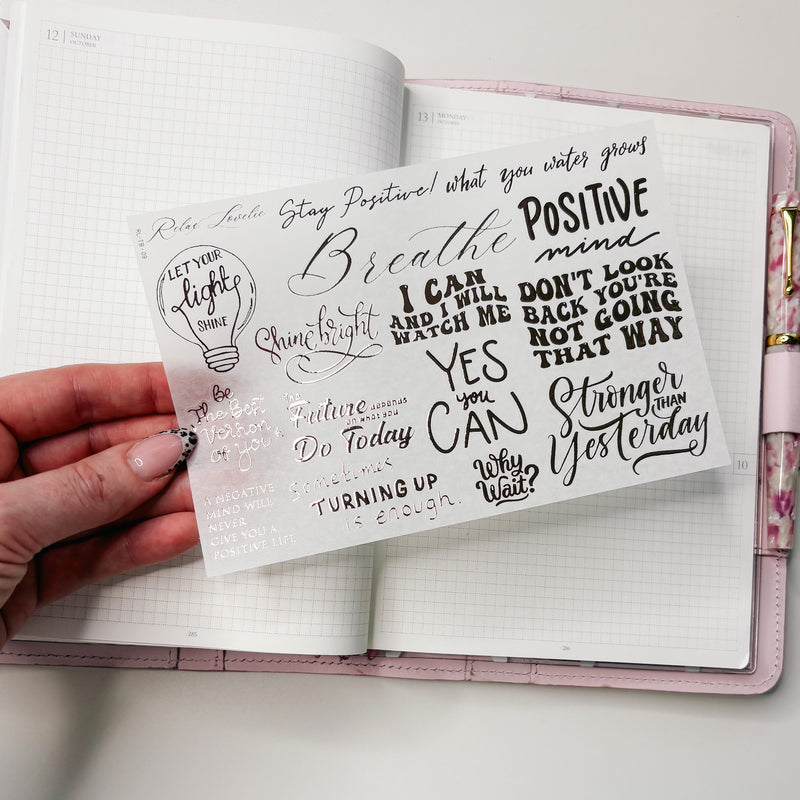 12 SUNDAY
OCTOBER
13 MONDAY
OCTOBER
Relax Lovelie
Stay Positive!
what you water grows
RL-TB-09
LET YOUR
light
SHINE
Breathe
POSITIVE
mind
Shine bright
I CAN
AND I WILL
WATCH ME
DON'T LOOK
BACK YOU'RE
NOT GOING
THAT WAY
To Be
The Best
Version
of You
The
Future depends
on what you
Do Today
YES
you
CAN
Stronger
THAN
Yesterday
A NEGATIVE
MIND WILL
NEVER
GIVE YOU A
POSITIVE LIFE
Sometimes
TURNING UP
is enough.
Why
Wait?
10
285
286